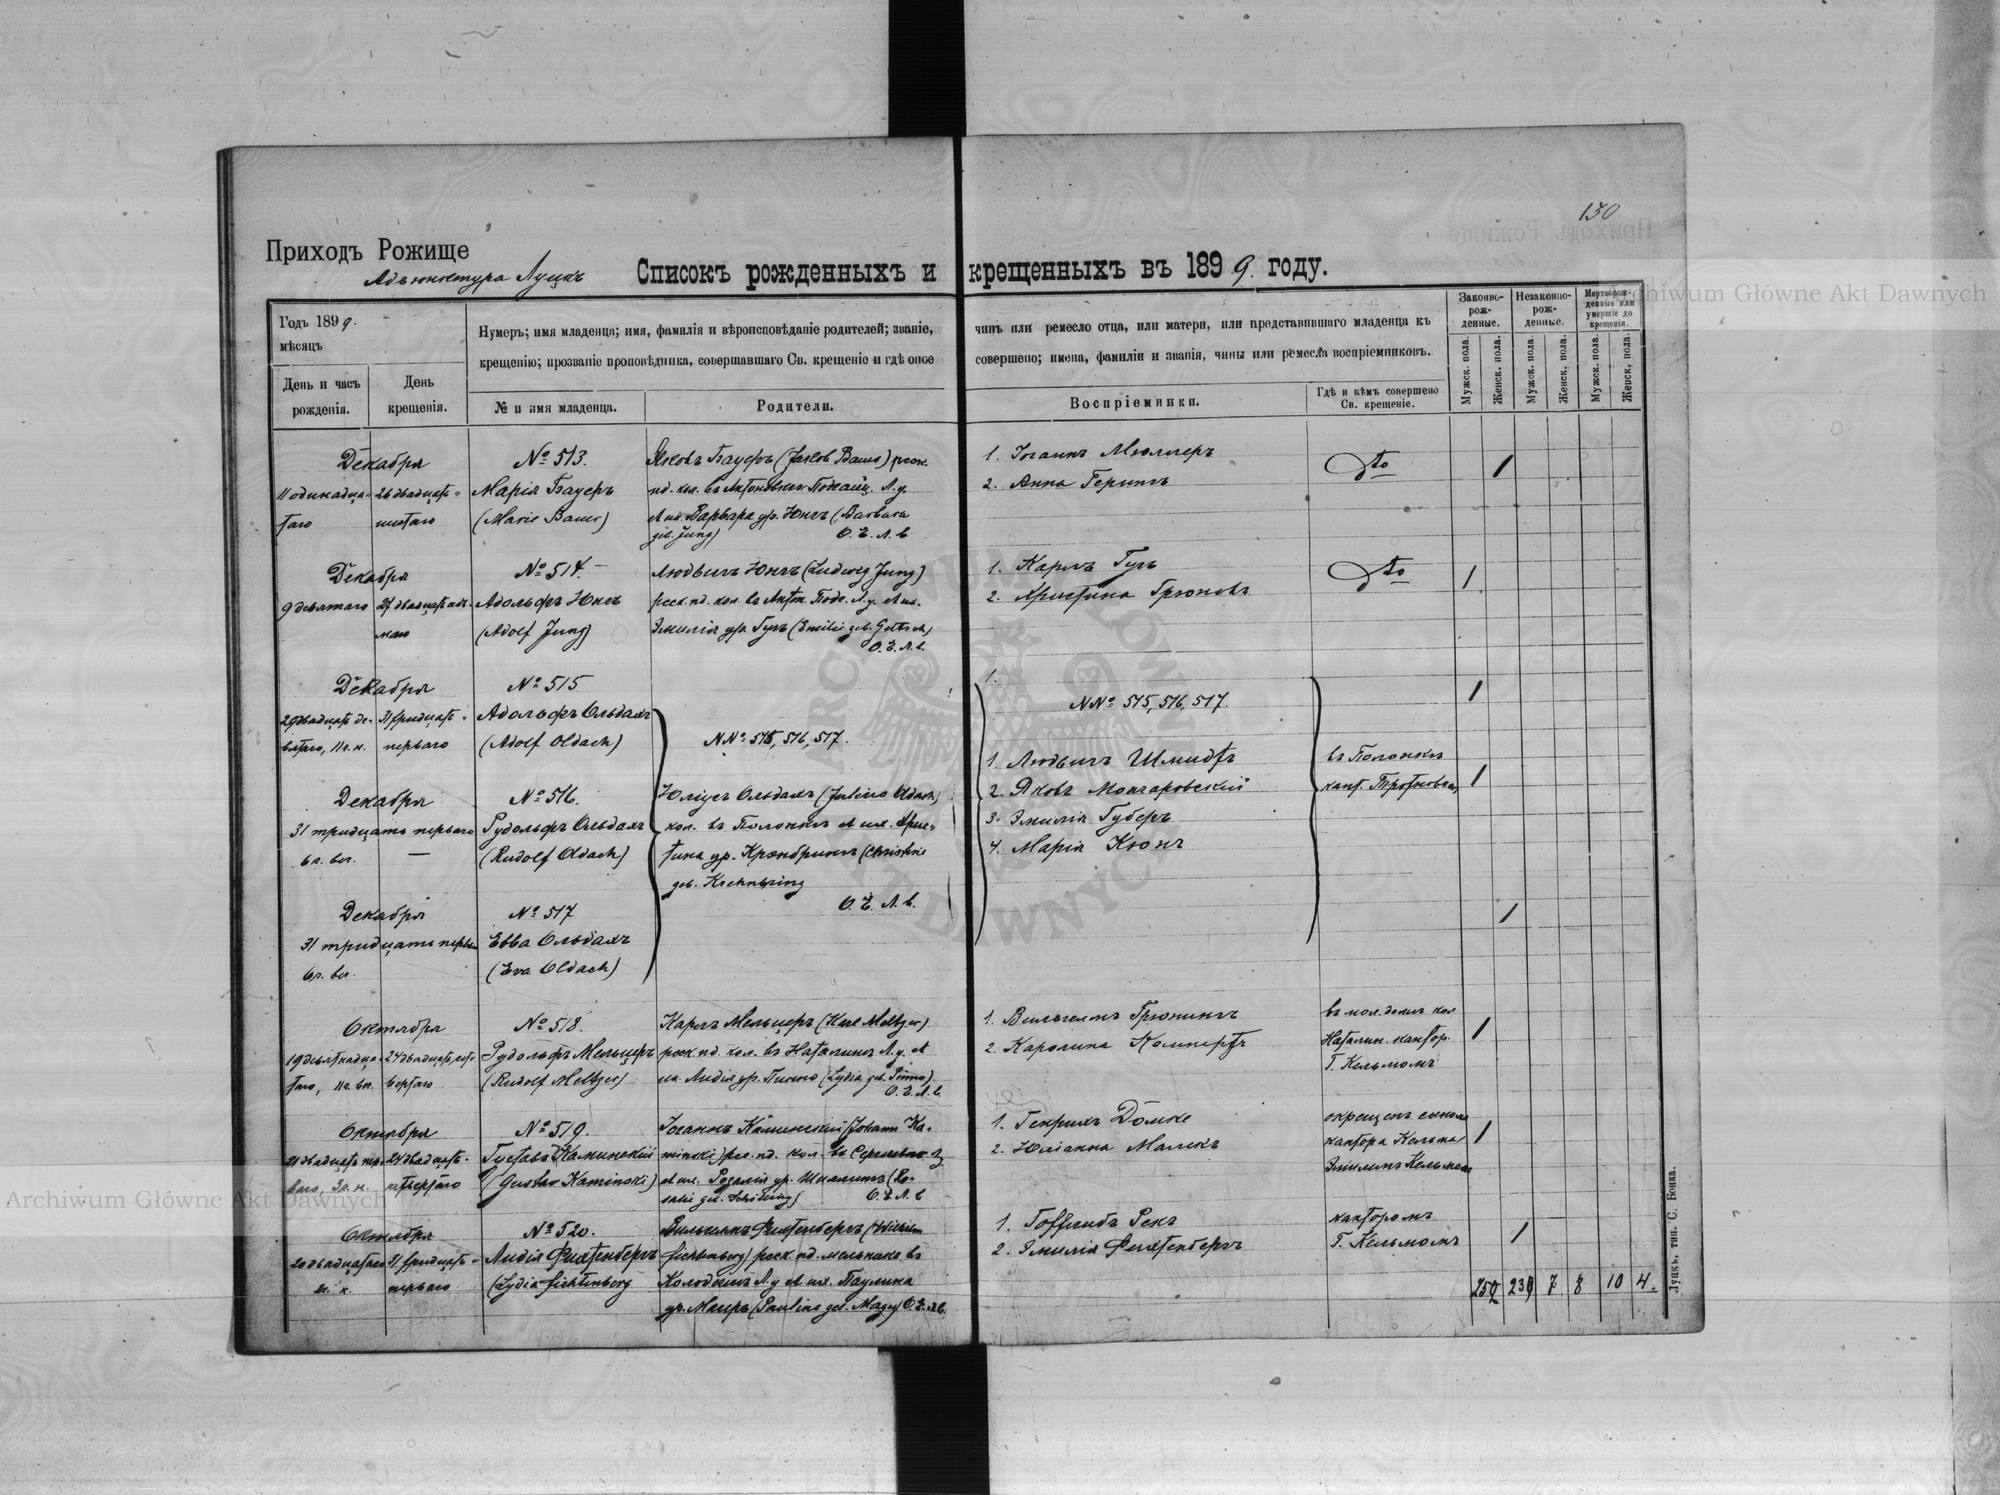 130
Приходъ Рожище
Адъюнктура Луцкъ
Списокъ рожденныхъ и крещенныхъ въ 1899. году.
Годъ 1899.
мѣсяцъ
Нумеръ; имя младенца; имя, фамилія и вѣроисповѣданіе родителей; званіе, чинъ или ремесло отца, или матери, или представившаго младенца къ
крещенію; прозваніе проповѣдника, совершавшаго Св. крещеніе и гдѣ оное совершено; имена, фамиліи и званія, чины или ремесла воспріемниковъ.
День и часъ рожденія.
День крещенія.
№ и имя младенца.
Родители.
Воспріемники.
Гдѣ и кѣмъ совершено Св. крещеніе.
Законно-рож-денные.
Незаконно-рож-денные.
Мертворож-денные или умершіе до крещенія.
Мужск. пола.
Женск. пола.
Мужск. пола.
Женск. пола.
Мужск. пола.
Женск. пола.
Декабря
11 одинадца-
таго
26 двадцать-
шестаго
№ 513.
Марія Бауеръ
(Marie Bauer)
Яковъ Бауеръ (Jakob Bauer) росс.
пд. кол. въ Антоновкѣ Л. у.
и жп. Варвара ур. Юнгъ (Barbara
geb. Jung)
О. Е. Л. в.
1. Іоганъ Мюллеръ
2. Анна Герингъ
dto
1
Декабря
9 девятаго
№ 514.
Адольфъ Юнгъ
(Adolf Jung)
Людвигъ Юнгъ (Ludwig Jung)
росс. пд. кол. въ Антон. Л. у. и жп.
Эмилія ур.
О. Е. Л. в.
1. Карлъ
2. Христина
dto
1
Декабря
29 двадцать де-
вятаго, 11 ч. н.
31 тридцать-
перваго
№ 515
Адольфъ Ольдахъ
(Adolf Oldach)
Декабря
31 тридцать перваго
6 ч. вч.
—
№ 516.
Рудольфъ Ольдахъ
(Rudolf Oldach)
Декабря
31 тридцать
6 ч. вч.
№ 517
Евва Ольдахъ
(Eva Oldach)
NN° 515, 516, 517.
Юліусъ Ольдахъ (Julius Oldach)
кол. въ Полонкѣ и жп. Крис-
тина ур. Крэнбрингъ (Christine
geb. Krehnbring
О. Е. Л. в.
1.
NN° 515, 516, 517.
1. Людвигъ Шмидтъ
2. Яковъ Мончаровскій
3. Эмилія Губеръ
4. Марія Кюнъ
въ Полонкѣ
кант.
1
1
1
Октября
19 девятнадца-
таго, 11 ч. вч.
24 двадцать чет-
вертаго
№ 518.
Рудольфъ Мельцеръ
(Rudolf Meltzer)
Карлъ Мельцеръ (Karl Meltzer)
росс. пд. кол. въ Наталинѣ Л. у. и
жп. Лидія ур. Пинно (Lydia geb. Pinno)
О. Е. Л. в.
1. Вильгельмъ Грюнингъ
2. Каролина
въ мол. домѣ кол.
Наталин. кантор.
Г. Кельмомъ
1
Октября
24 двадцать-
четвертаго
№ 519.
Густавъ Каминскій
(Gustav Kaminski)
Іоганъ Каминскій (Johann Ka-
minski) рос. пд. кол. въ
и жп. Розалія ур. Шиллингъ (Ro-
salie geb. Schilling)
О. Е. Л. в.
1. Генрихъ Домке
2. Юліанна Малькъ
окрещенъ сыномъ
кантора Кельма
Эмилемъ Кельмомъ
1
Октября
20 двадцатаго
31 тридцать-
перваго
№ 520.
Лидія Фихтенбергъ
(Lydia Fichtenberg
Вильгельмъ Фихтенбергъ (Wilhelm
Fichtenberg) росс. пд. мельникъ въ
Л. у. и жп. Паулина
ур. Магеръ (Pauline geb. Mager) О. Е. Л. в.
1. Готтлибъ Рекъ
2. Эмилія Фихтенбергъ
канторомъ
Г. Кельмомъ
1
252 239 7 8 10 4.
Луцкъ, тип. С. Бонка.
Archiwum Główne Akt Dawnych
Archiwum Główne Akt Dawnych